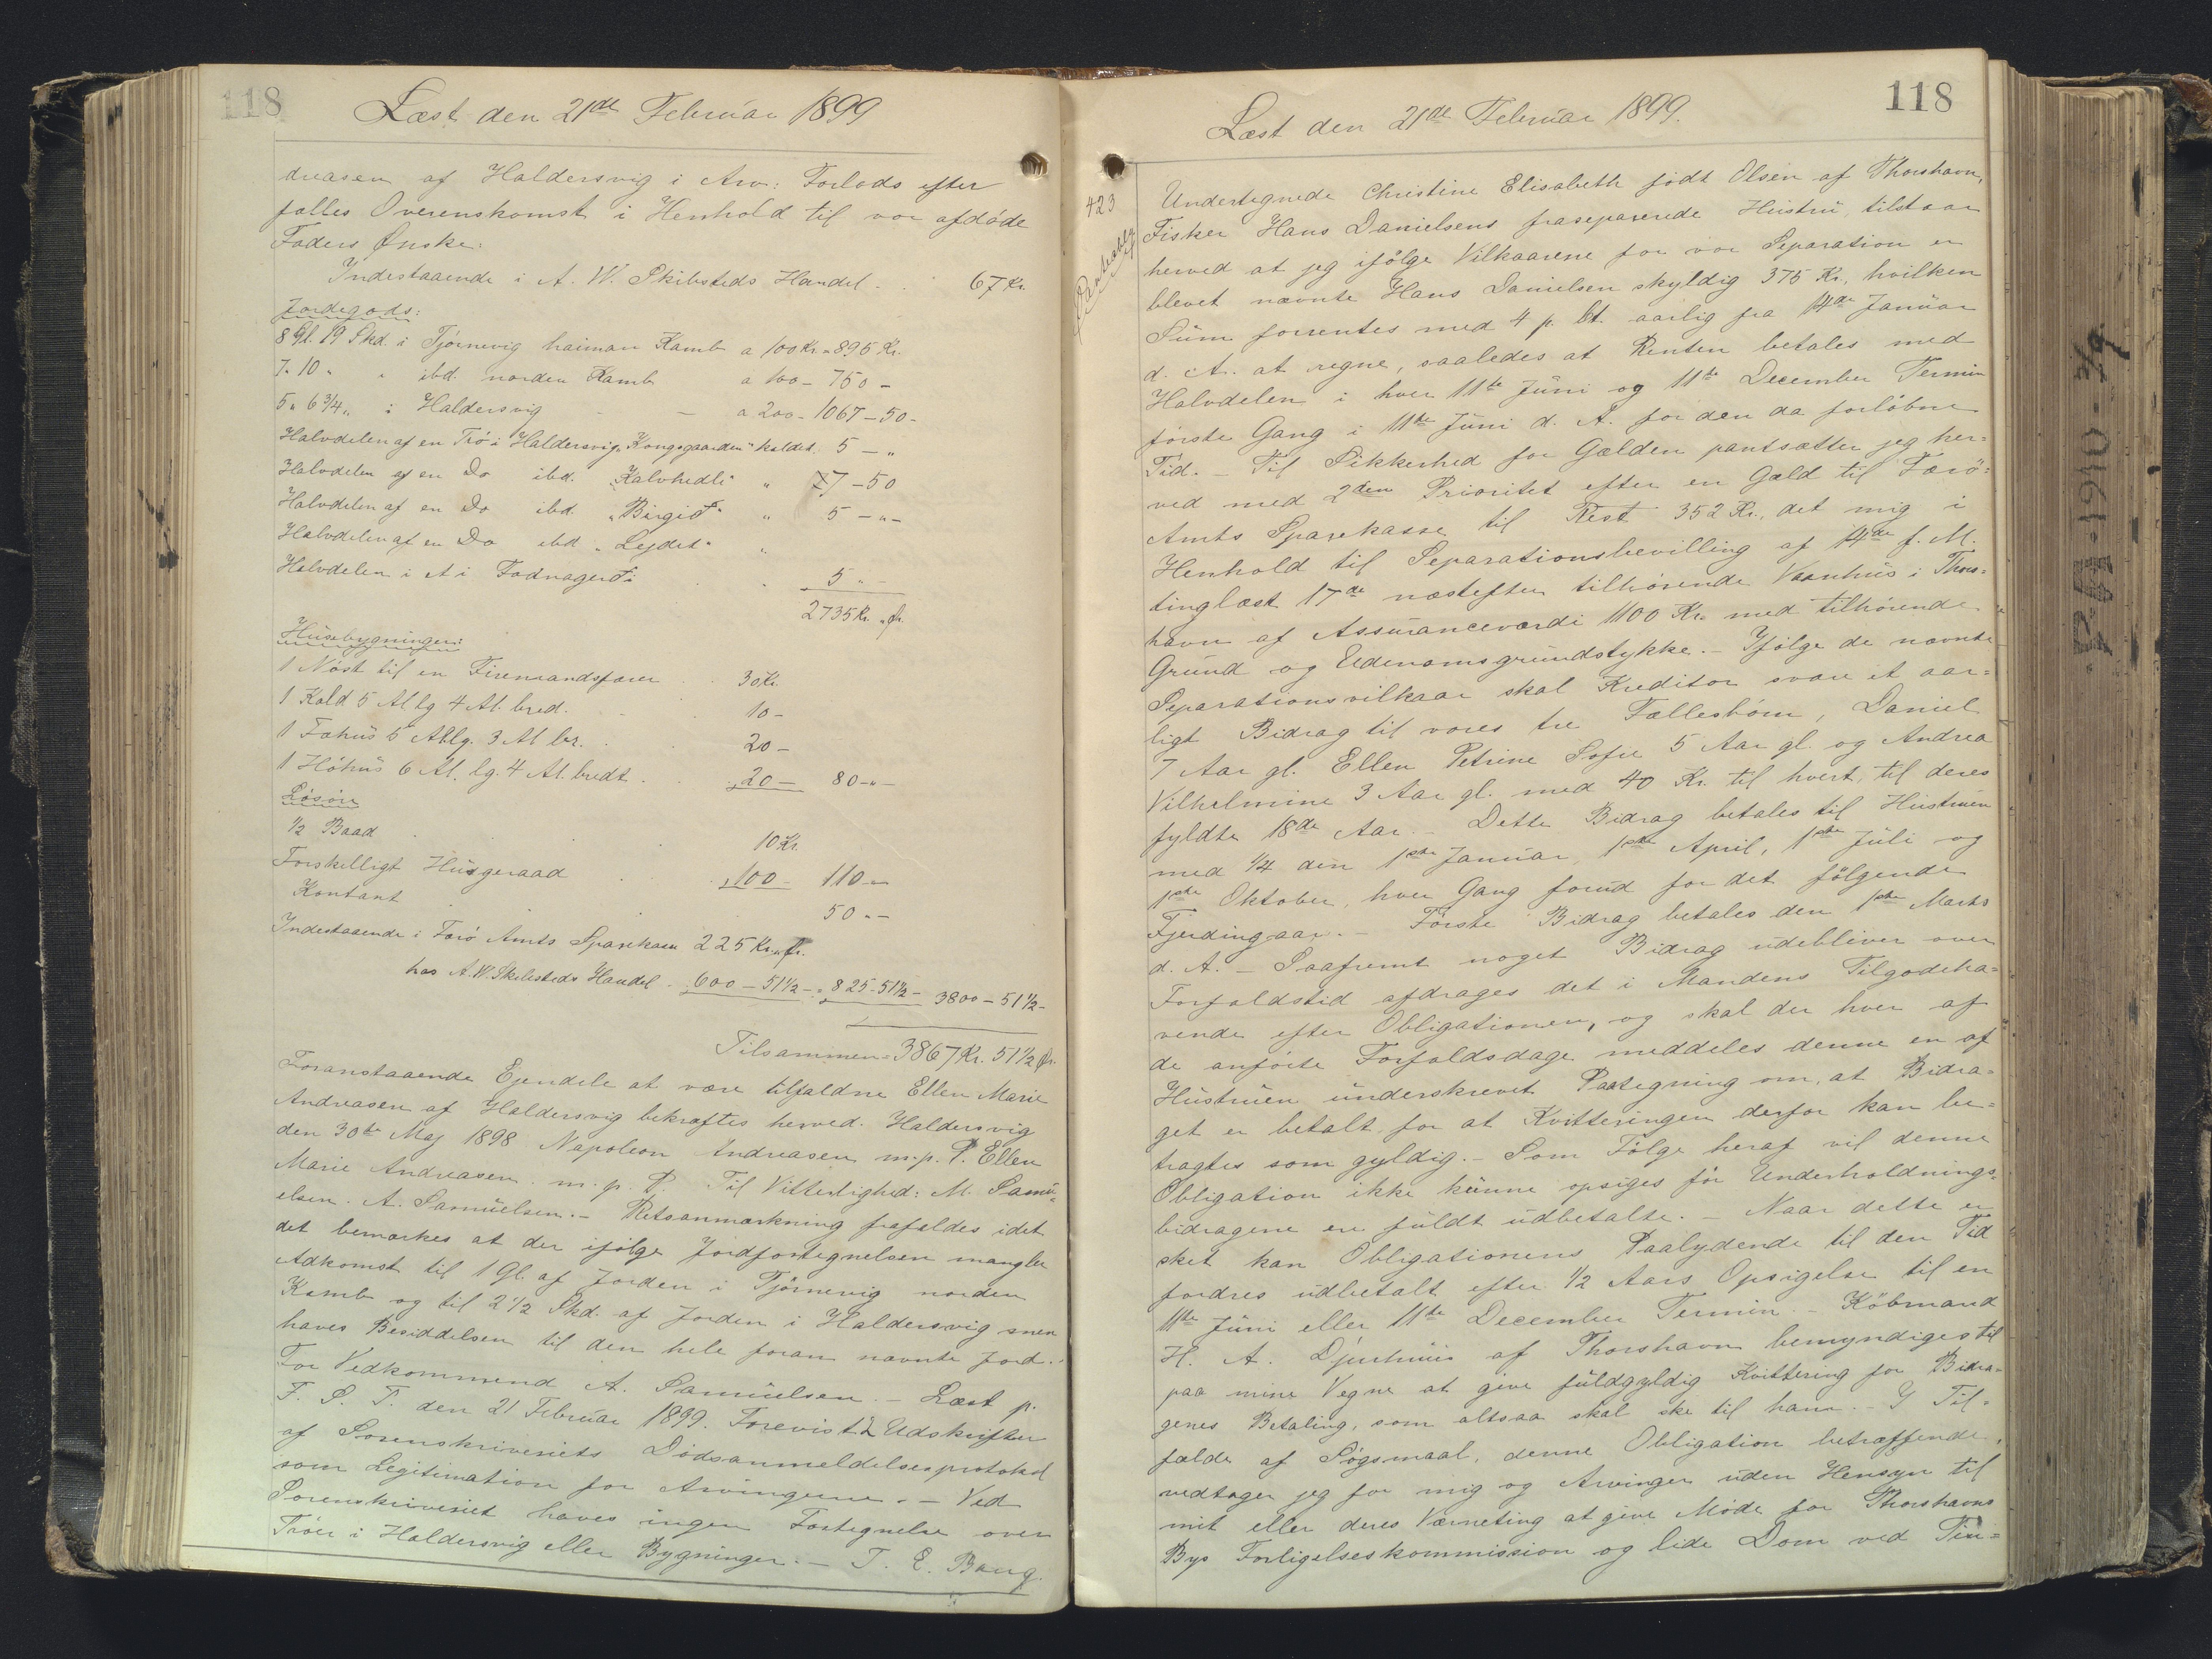 118
Læst den 21de Februar 1899
dreasen af Haldersvig i Arv: Forlods efter
fælles Overenskomst i Henhold til vor afdøde
Faders Ønske:
Indestaaende i A. W. Skibsteds Handel . . 67 Kr.
Jordegods:
8 Gl. 19 Skd. i Tjørnevig haiman Kamb a 100 Kr. = 895 Kr.
7 " 10 " " ibd. norden Kamb a 100 - 750 -
5 " 6 3/4 " i Haldersvig - - a 200 - 1067 - 50 -
Halvdelen af en Trø i Haldersvig "Kongsgaarden" kaldet. 5 - "
Halvdelen af en Do ibd. "Kalvhedli" " 7 - 50
Halvdelen af en Do ibd. "Birgið" " 5 - " -
Halvdelen af en Do ibd. "Lejdet" "
Halvdelen i et i Fodnagerði . . 5 " -
2735 Kr. " Ør.
Husebygninger:
1 Nøst til en Firemandsfarer . 30 Kr.
1 Kald 5 Al lg 4 Al. bred. . 10 -
1 Fæhus 5 Al lg. 3 Al br. . . 20 -
1 Høhus 6 Al. lg. 4 Al. bredt . . 20 - 80 - " -
Løsøre
1/2 Baad . . . 10 Kr.
Forskelligt Husgeraad . . 100 - 110 - "
Kontant . . . 50 " -
Indestaaende i Færø Amts Sparekasse 225 Kr. " Ør.
hos A. W. Skibsteds Handel - 600 - 51 1/2 - = 825 - 51 1/2 - 3800 - 51 1/2 -
Tilsammen = 3867 Kr. 51 1/2 Ør.
Foranstaaende Ejendele at være tilfaldne Ellen Marie
Andreasen af Haldersvig bekræftes herved. Haldersvig
den 30te Maj 1898 Napoleon Andreasen m. p. P. Ellen
Marie Andreasen. m. p. P. Til Vitterlighed: M. Samu=
elsen. A. Samuelsen. - Retsanmærkning frafaldes idet
det bemærkes at der ifølge Jordfortegnelsen mangler
Adkomst til 1 Gl. af Jorden i Tjørnevig norden
Kamb og til 2 1/2 Skd. af Jorden i Haldersvig men
haves Besiddelsen til den hele foran nævnte Jord. -
For Vedkommend A. Samuelsen. - Læst p.
F. S. T. den 21 Februar 1899. Forevist 2 Udskrifter
af Sorenskriveriets Dødsanmeldelsesprotokol
som Legitimation for Arvingerne. - Ved
Sorenskriveriet haves ingen Fortegnelse over
Trøer i Haldersvig eller Bygninger. - T. E. Bang.
118
Læst den 21de Februar 1899.
423
Undertegnede Christine Elisabeth født Olsen af Thorshavn,
Fisker Hans Danielsens fraseparerede Hustru tilstaar
herved at jeg ifølge Vilkaarene for vor Separation er
blevet nævnte Hans Danielsen skyldig 375 Kr., hvilken
Sum forrentes med 4 p. Ct. aarlig fra 14de Januar
d. A. at regne, saaledes at Renten betales med
Halvdelen i hver 11te Juni og 11te December Termin
første Gang i 11te Juni d. A. for den da forløbne
Tid. - Til Sikkerhed for Gælden pantsætter jeg her=
ved med 2den Prioritet efter en Gæld til Færø=
Amts Sparekasse til Rest 352 Kr. det mig i
Henhold til Separationsbevilling af 14de f. M.
tinglæst 17de næstefter tilhørende Vaanhus i Thors=
havn af Assuranceværdi 1100 Kr. med tilhørende
Grund og Udenomsgrundstykke. - Ifølge de nævnte
Separationsvilkaar skal Kreditor svare et aar=
ligt Bidrag til vores tre Fællesbørn, Daniel
7 Aar gl. Ellen Petrine Sofie 5 Aar gl. og Andrea
Vilhelmine 3 Aar gl. med 40 Kr. til hvert, til deres
fyldte 18de Aar. - Dette Bidrag betales til Hustruen
med 1/4 den 1ste Januar, 1ste April, 1ste Juli og
1ste Oktober, hver Gang forud for det følgende
Fjerdingaar. - Første Bidrag betales den 1ste Marts
d. A. - Saafremt noget Bidrag udebliver over
Forfaldstid afdrages det i Mandens Tilgodeha=
vende efter Obligationen, og skal der hver af
de anførte Forfaldsdage meddeles denne en af
Hustruen underskrevet Paategning om, at Bidra=
get er betalt, for at Kvitteringen derfor kan be=
tragtes som gyldig. - Som Følge heraf vil denne
Obligation ikke kunne opsiges før Underholdnings=
bidragene ere fuldt udbetalte. - Naar dette er
sket kan Obligationens Paalydende til den Tid
fordres udbetalt efter 1/2 Aars Opsigelse til en
11te Juni eller 11te December Termin. - Købmand
H. A. Djurhuus af Thorshavn bemyndiges til
paa mine Vegne at give fuldgyldig Kvittering for Bidra=
genes Betaling, som altsaa skal ske til ham. - I Til=
fælde af Søgsmaal, denne Obligation betræffende,
vedtager jeg for mig og Arvinger uden Hensyn til
mit eller deres Værneting at give Møde for Thorshavns
Bys Forligelseskommission og lide Dom ved Tin=